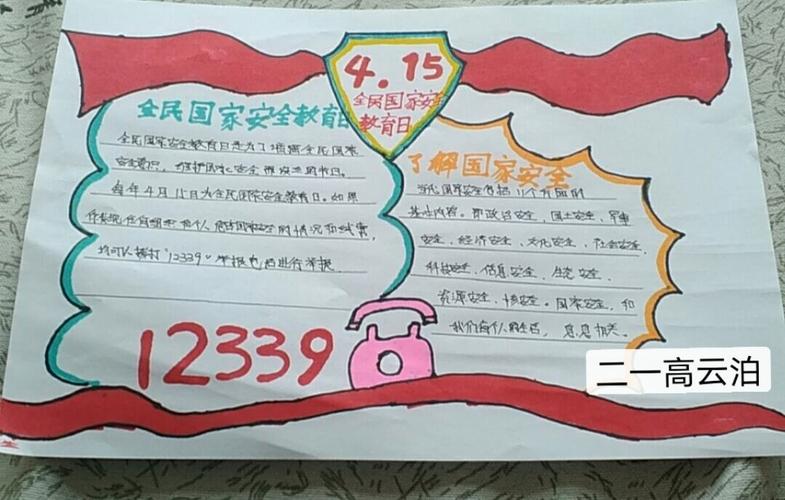 4.15
全民国家安全
教育日
全民国家安全教育日
全民国家安全教育日是为了增强全民国家
安全意识，维护国家安全而设立的节日。
每年4月15日为全民国家安全教育日。如果
任何组织和个人发现国家安全的情况和线索，
均可以拨打"12339"举报电话进行举报
12339
了解国家安全
当代国家安全包括11个方面的
基本内容。即政治安全、国土安全、军事
安全、经济安全、文化安全、社会安全、
科技安全、信息安全、生态安全、
资源安全、核安全。国家安全，和
我们每个人的生活，息息相关。
二一高云泊